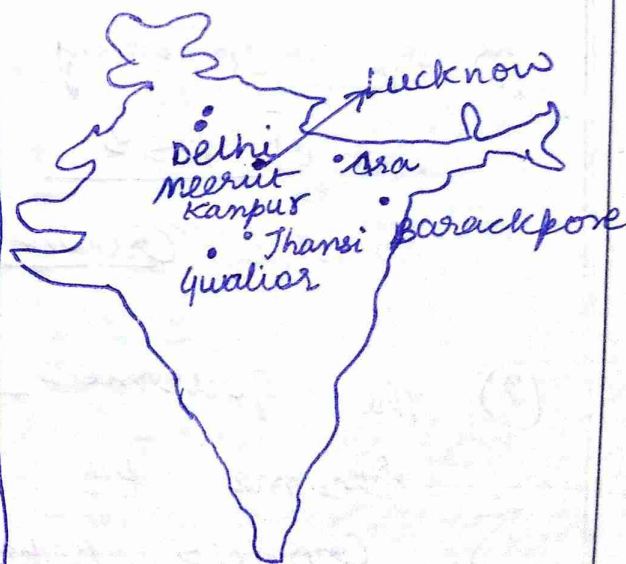 Lucknow
Delhi
Ara
Meerut
Kanpur
Barackpore
Jhansi
Gwalior